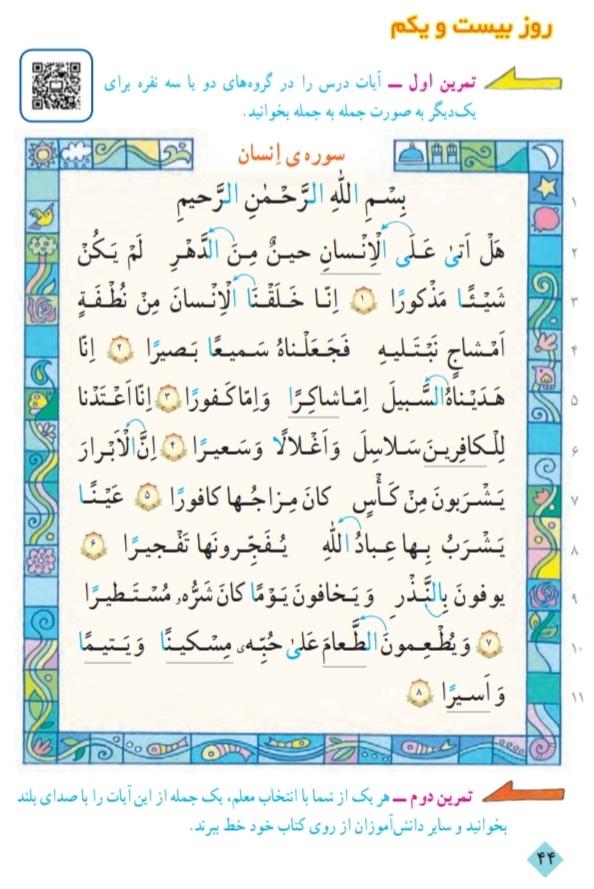 روز بیست و یکم
تمرین اول ــ آیات درس را در گروه‌های دو یا سه نفره برای
یک‌دیگر به صورت جمله به جمله بخوانید.
سوره‌ی اِنسان
بِسْمِ اللّٰهِ الرَّحْمٰنِ الرَّحیمِ
۱
هَلْ اَتیٰ عَلَی الْاِنْسانِ حینٌ مِنَ الدَّهْرِ لَمْ یَکُنْ
۲
شَیْئًا مَذْکورًا ۱ اِنّا خَلَقْنَا الْاِنْسانَ مِنْ نُطْفَةٍ
۳
اَمْشاجٍ نَبْتَلیهِ فَجَعَلْناهُ سَمیعًا بَصیرًا ۲ اِنّا
۴
هَدَیْناهُ السَّبیلَ اِمّا شاکِرًا وَ اِمّا کَفورًا ۳ اِنّا اَعْتَدْنا
۵
لِلْکافِرینَ سَلاسِلَ وَ اَغْلالًا وَ سَعیرًا ۴ اِنَّ الْاَبْرارَ
۶
یَشْرَبونَ مِنْ کَأْسٍ کانَ مِزاجُها کافورًا ۵ عَیْنًا
۷
یَشْرَبُ بِها عِبادُ اللّٰهِ یُفَجِّرونَها تَفْجیرًا ۶
۸
یوفونَ بِالنَّذْرِ وَ یَخافونَ یَوْمًا کانَ شَرُّهُ مُسْتَطیرًا
۹
۷ وَ یُطْعِمونَ الطَّعامَ عَلیٰ حُبِّهِ مِسْکینًا وَ یَتیمًا
۱۰
وَ اَسیرًا ۸
۱۱
تمرین دوم ــ هر یک از شما با انتخاب معلم، یک جمله از این آیات را با صدای بلند
بخوانید و سایر دانش‌آموزان از روی کتاب خود خط ببرند.
۴۴